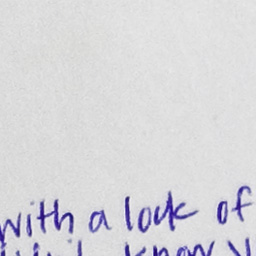 with a lock of
know